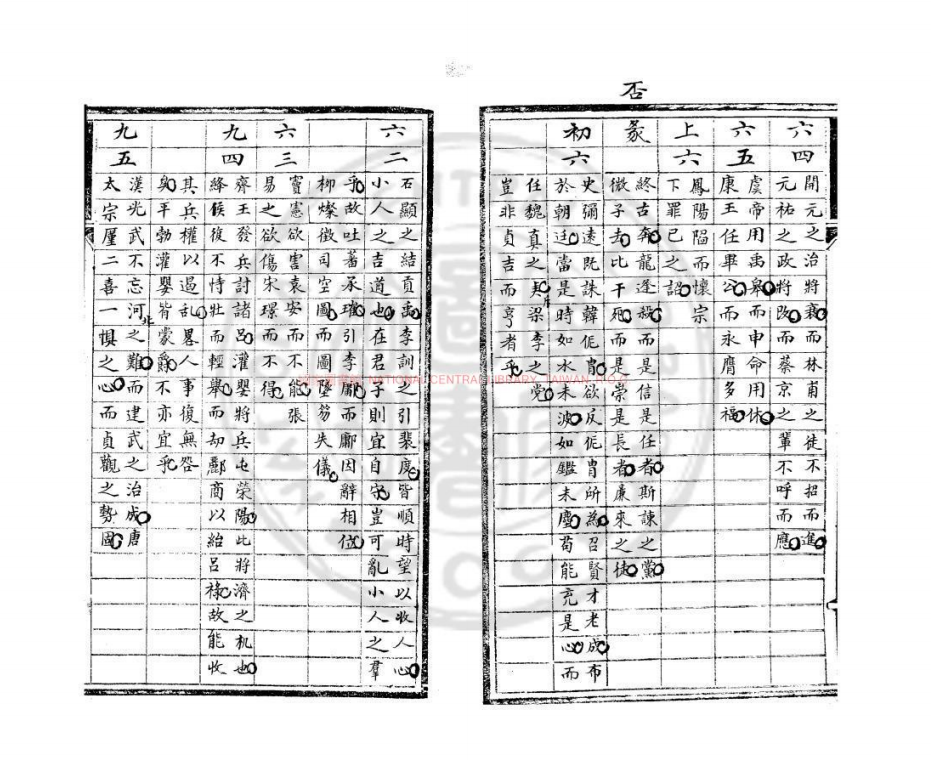 否
六四
開元之治將衰而林甫之徒不招而進
元祐之政將改而蔡京之輩不呼而應
六五
虞帝用禹皋而申命用休
康王任畢公而永膺多福
上六
鳳陽陷而懷宗
下罪己之詔
彖
終古奔龍逢殺而是信是任者斯諫之黨
微子去比干死而是崇是長者廉來之徒
初六
史彌遠既誅韓侂胄欲反侂胄所為召賢才老成布
於朝廷當是時如水未波如鑑未塵苟能充是心而
任魏真之梁李之黨
豈非貞吉而亨者乎
六二
石顯之結貢禹李訓之引裴度皆順時望以收人心
小人之吉道也在君子則宜自守豈可亂小人之羣
乎故吐蕃承璀引李鄘而鄘因辭相位
柳燦徵司空圖而圖墜笏失儀
六三
竇憲欲害袁安而不能張
易之欲傷宋璟而不得
九四
齊王發兵討諸呂灌嬰將兵屯榮陽比將濟之机也
絳侯後不恃壯而輕舉而却酈商以紿呂祿故能收
其兵權以遏亂畧人事復無咎
與平勃灌嬰皆蒙爵不亦宜乎
九五
漢光武不忘河北之難而建武之治成唐
太宗屢二喜一懼之心而貞觀之勢固
NATIONAL CENTRAL LIBRARY, TAIWAN R.O.C